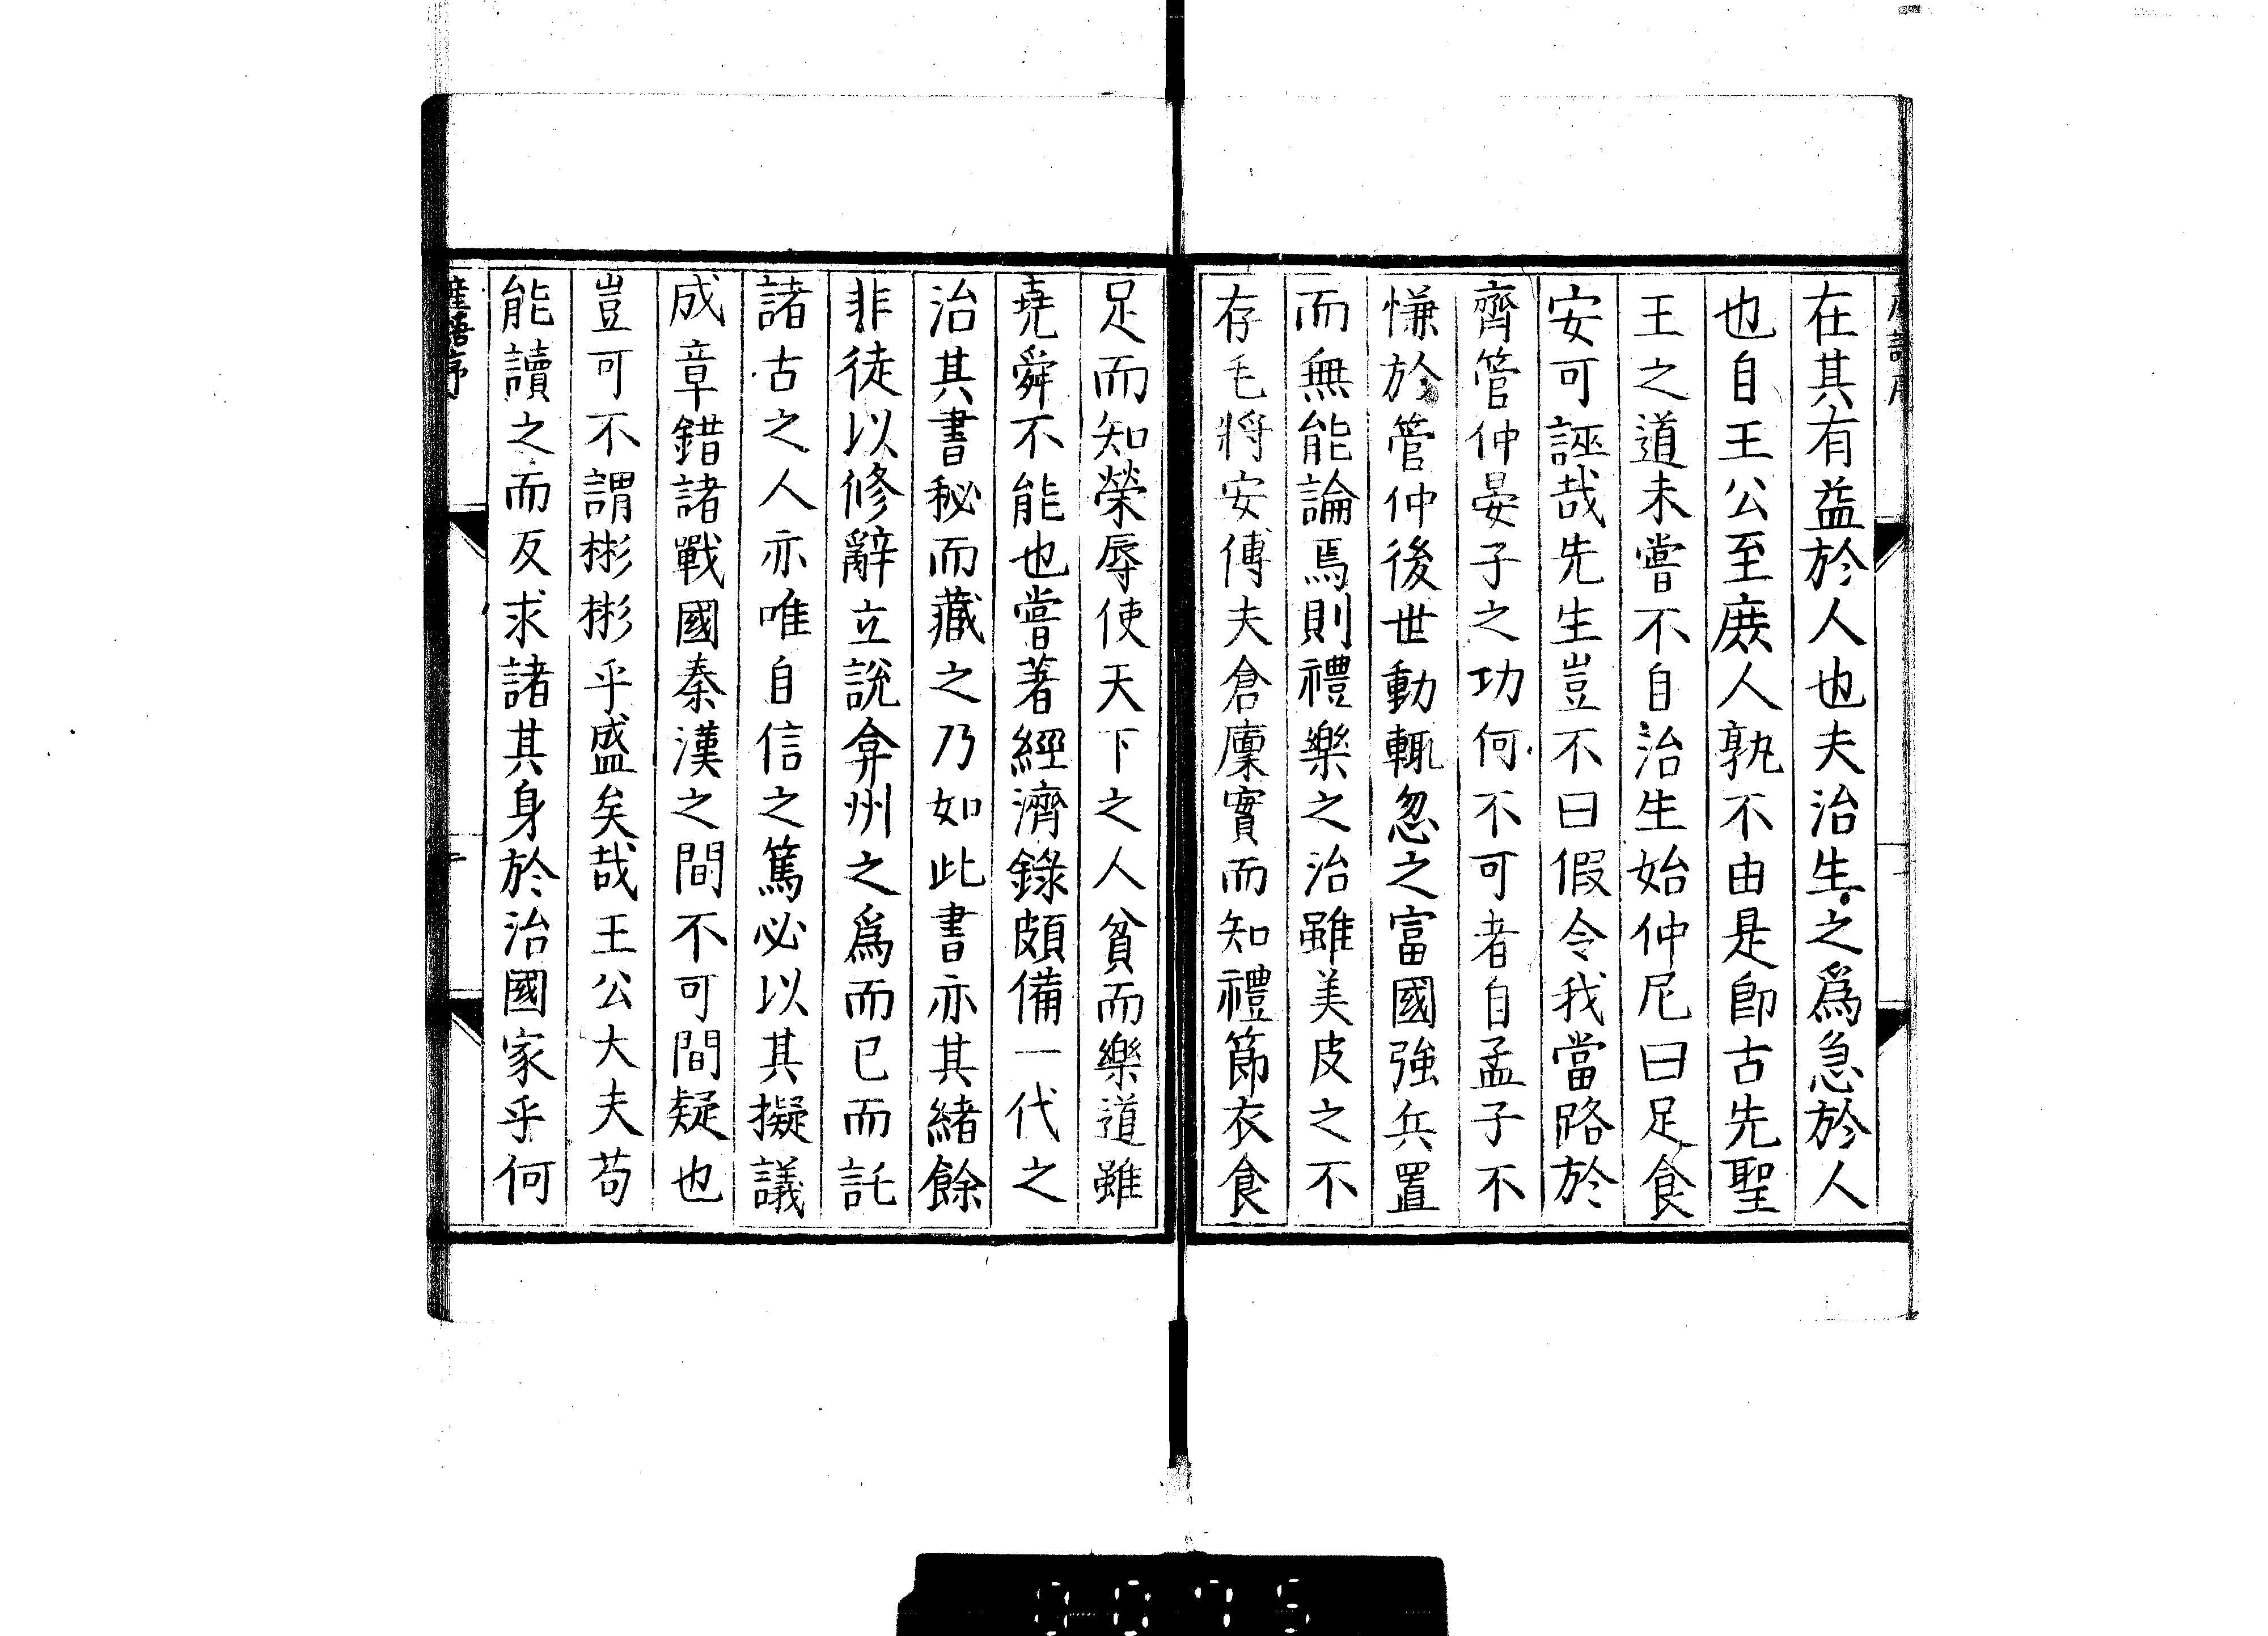 在其有益於人也夫治生之爲急於人
也自王公至庻人孰不由是卽古先聖
王之道未嘗不自治生始仲尼曰足食
安可誣哉先生豈不曰假令我當路於
齊管仲晏子之功何不可者自孟子不
慊於管仲後世動輒忽之富國強兵置
而無能論焉則禮樂之治雖美皮之不
存毛將安傅夫倉廩實而知禮節衣食
足而知榮辱使天下之人貧而樂道雖
堯舜不能也嘗著經濟錄頗備一代之
治其書秘而藏之乃如此書亦其緒餘
非徒以修辭立説弇州之爲而已而託
諸古之人亦唯自信之篤必以其擬議
成章錯諸戰國秦漢之間不可間疑也
豈可不謂彬彬乎盛矣哉王公大夫苟
能讀之而反求諸其身於治國家乎何